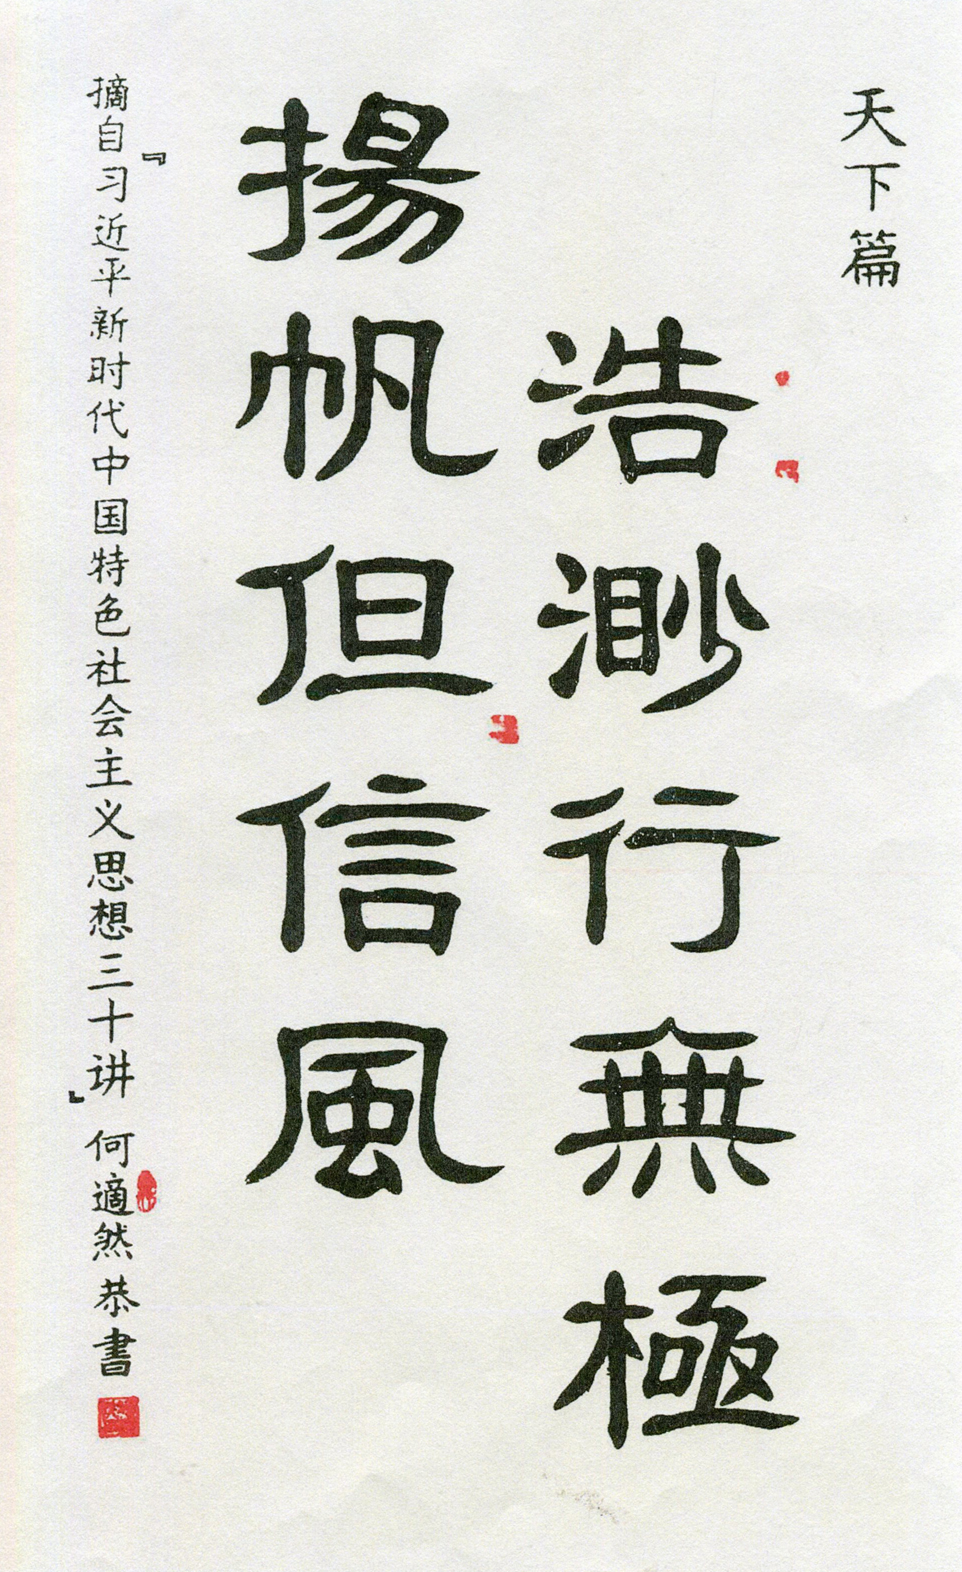 天下篇
浩渺行無極
揚帆但信風
摘自『习近平新时代中国特色社会主义思想三十讲』何適然恭書